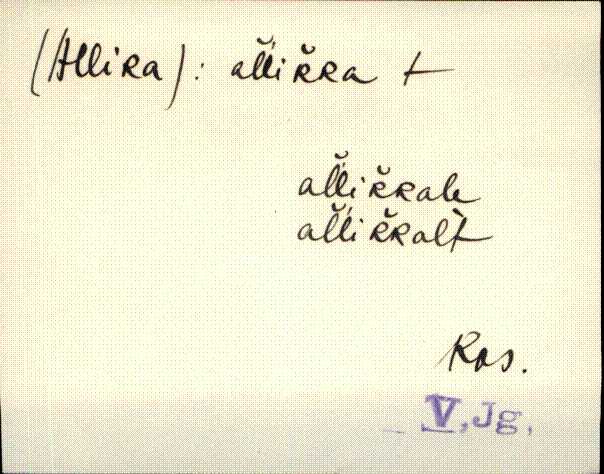 (Allika): al̆likka t
al̆likkale
al̆likkalt
Kos.
V, Jg,